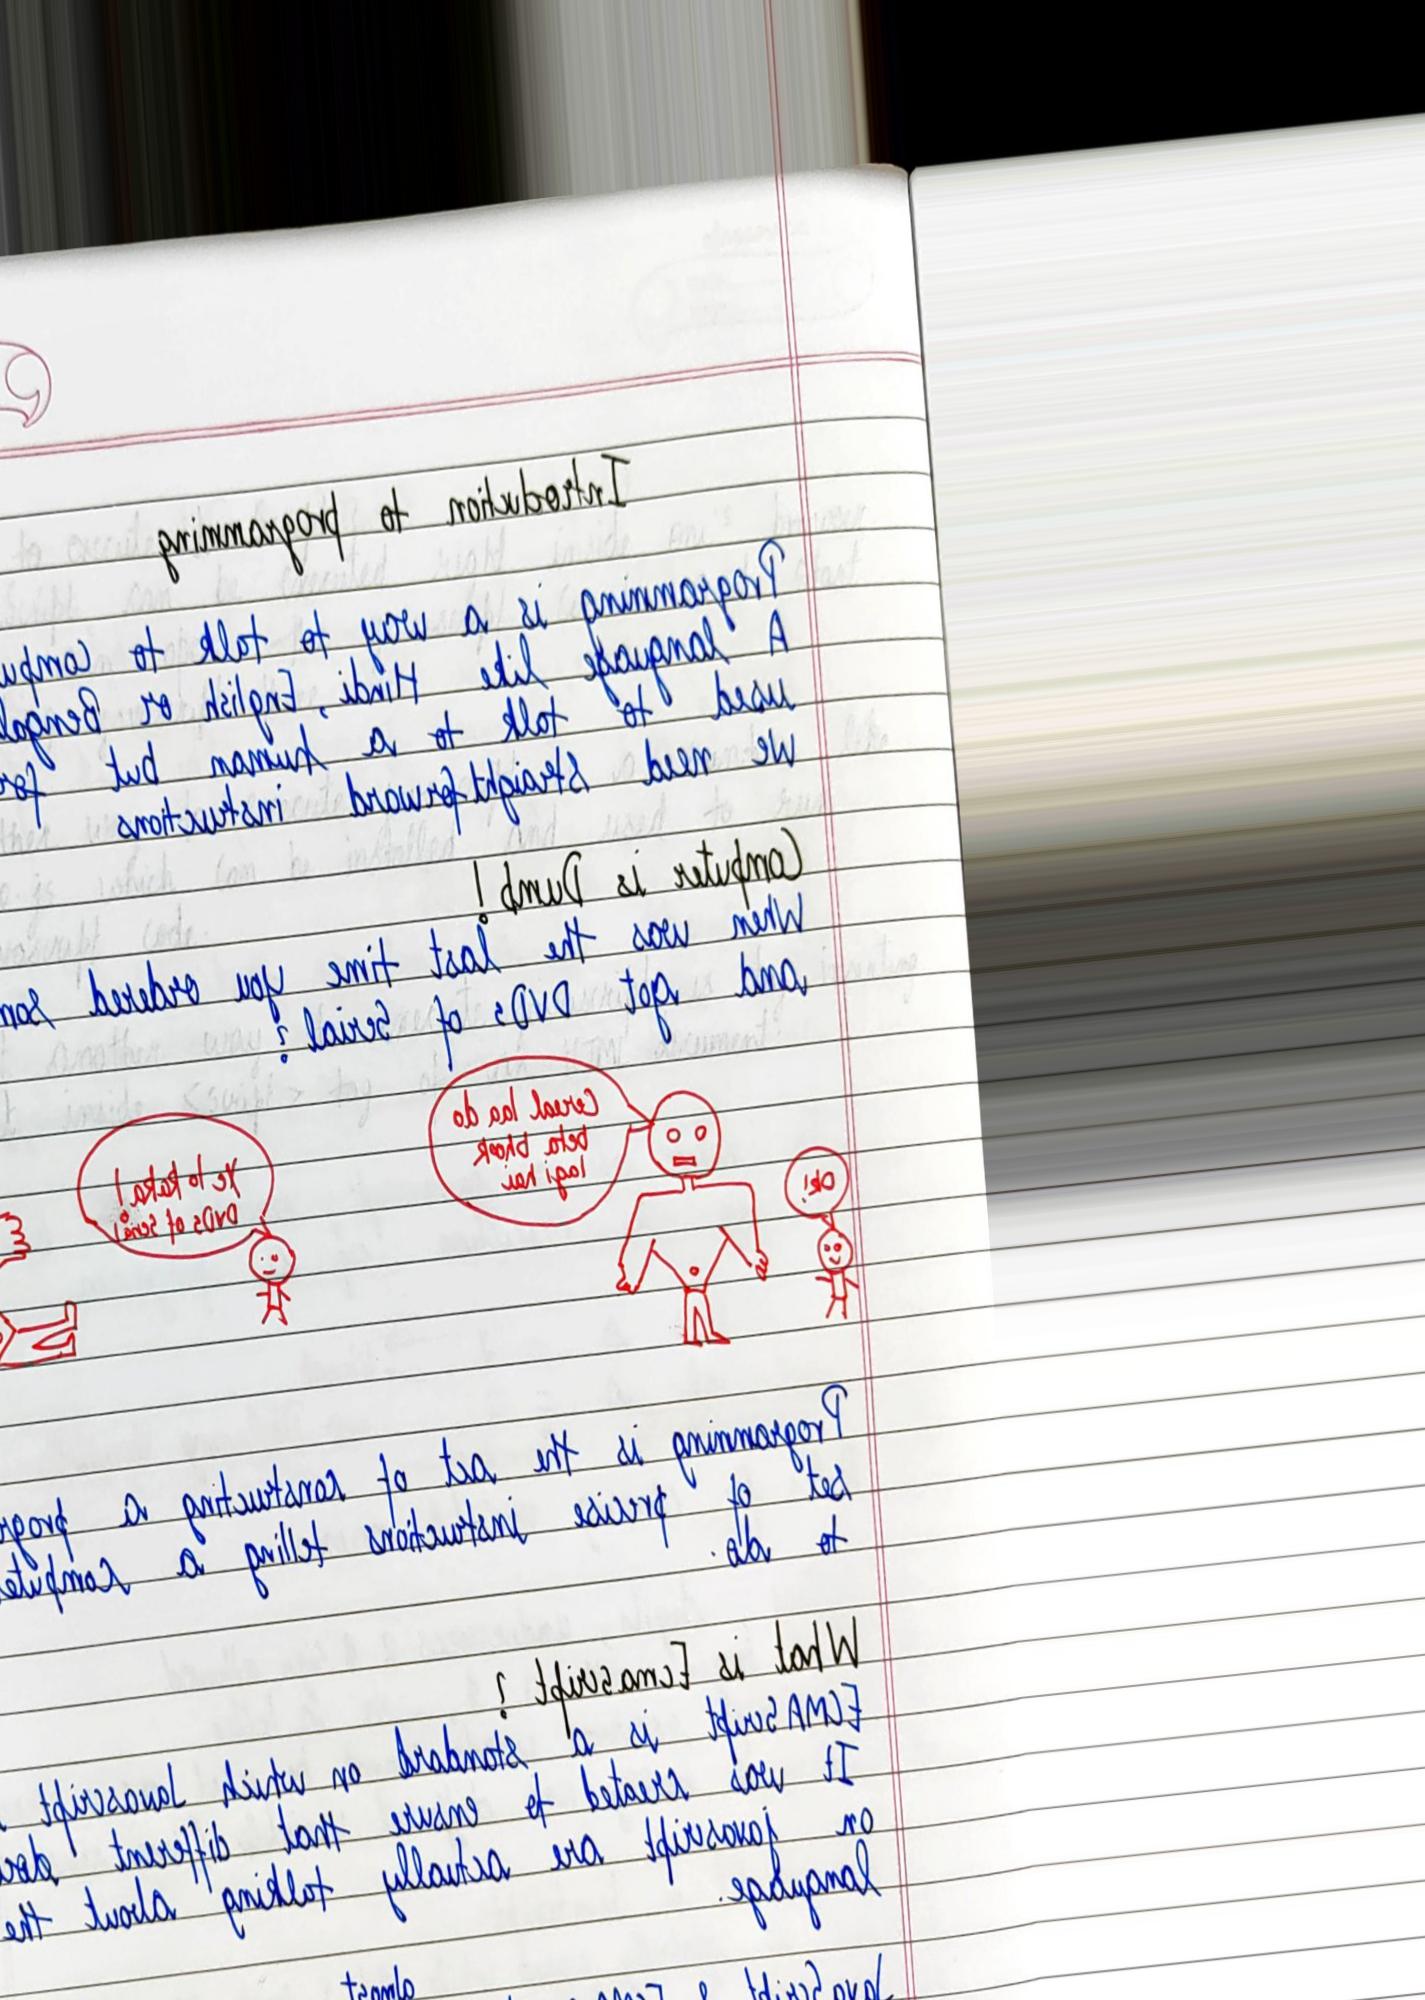 Introduction to programming
Programming is a way to talk to
A language like Hindi, English or
used to talk to a human but for
we need straightforward instructions
Computer is Dumb!
When was the last time you ordered
and got DVDs of Serial?
Cereal laa do
beta bhook
lagi hai
Ok!
Ye lo kaka!
DVDs of
Programming is the act of constructing a
set of precise instructions telling a
to do.
What is EcmaScript?
ECMAScript is a standard on which Javascript
It was created to ensure that different
on javascript are actually talking about the
language.
JavaScript & almost